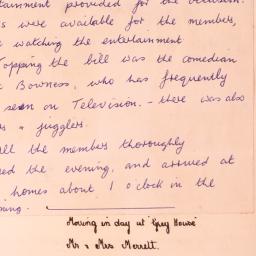 tainment provided for the occasion.
s were available for the members,
watching the entertainment
Topping the bill was the comedian
Bowness, who has frequently
seen on Television. - there was also
rs & jugglers.
all the members thoroughly
ed the evening, and arrived at
homes about 1 o'clock in the
ning.
Moving in day at 'Grey House'
Mr & Mrs Merrett.